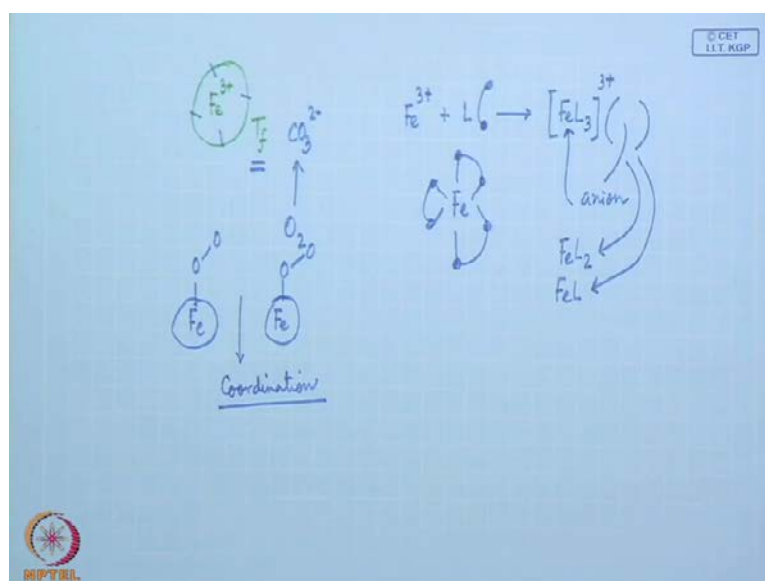 © CET
I.I.T. KGP
Fe³⁺
Tf CO₃²⁻
O₂
O O
O O
Fe Fe
Coordination
Fe³⁺ + L → [FeL₃]³⁺ ( )
Fe
anion
FeL₂
FeL
NPTEL